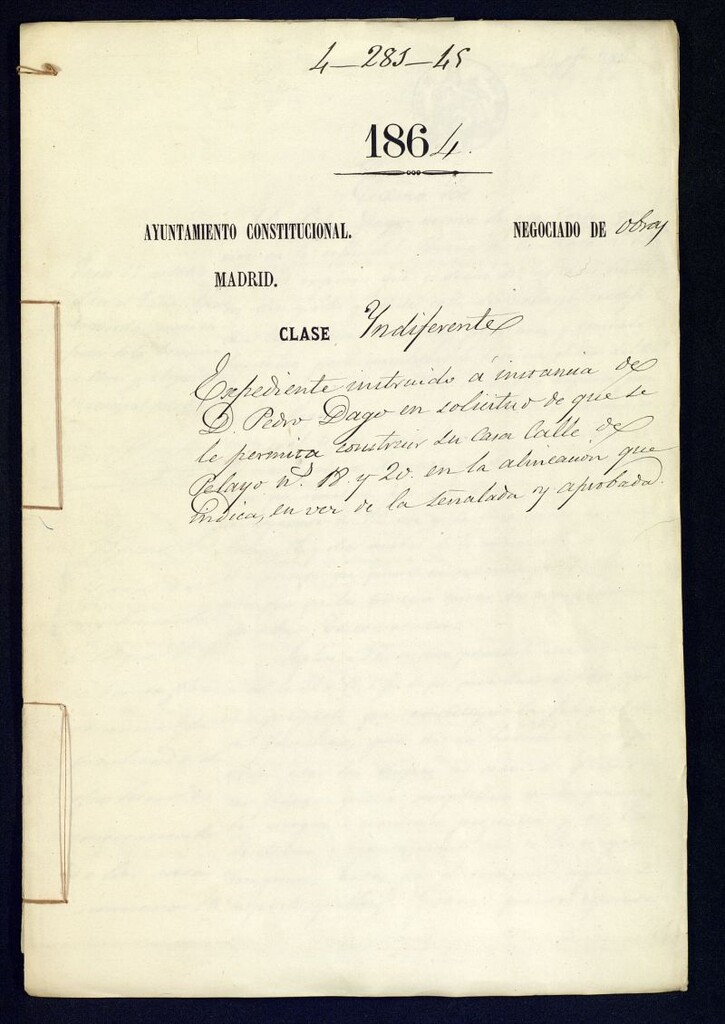 4-285-45
1864.
AYUNTAMIENTO CONSTITUCIONAL.
NEGOCIADO DE obras
MADRID.
CLASE Yndiferente
Expediente instruido á instancia de
D. Pedro Dago en solicitud de que se
le permita construir su casa Calle de
Pelayo nos. 18. y 20. en la alineacion que
indica, en vez de la señalada y aprobada.